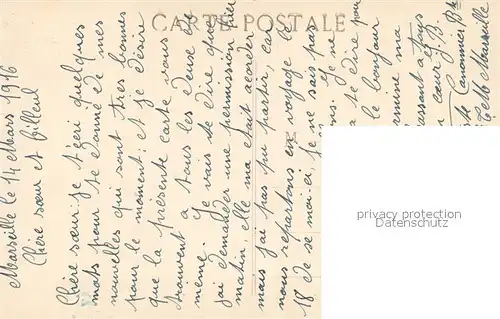 CARTE POSTALE
Marseille le 14 Mars 1916
Chère sœur et filleul
Chère sœur. je t'écri quelques
mots pour te donné de mes
nouvelles qui sont très bonnes
pour le moment: et je désir
que la présente carte vous
trouvent a tous les deuse de
meme. Je vais te dire que
jai demander une permission hier
matin, elle ma était acorder
mais jai pas pu partir, car
nous repartons en voyage le
18 de se moi-ci, je ne sais pas
je ne
te dire pour
le bonjour
termine ma
ressant a tous
cœur J.B.
privacy protection
www.delcampe.net